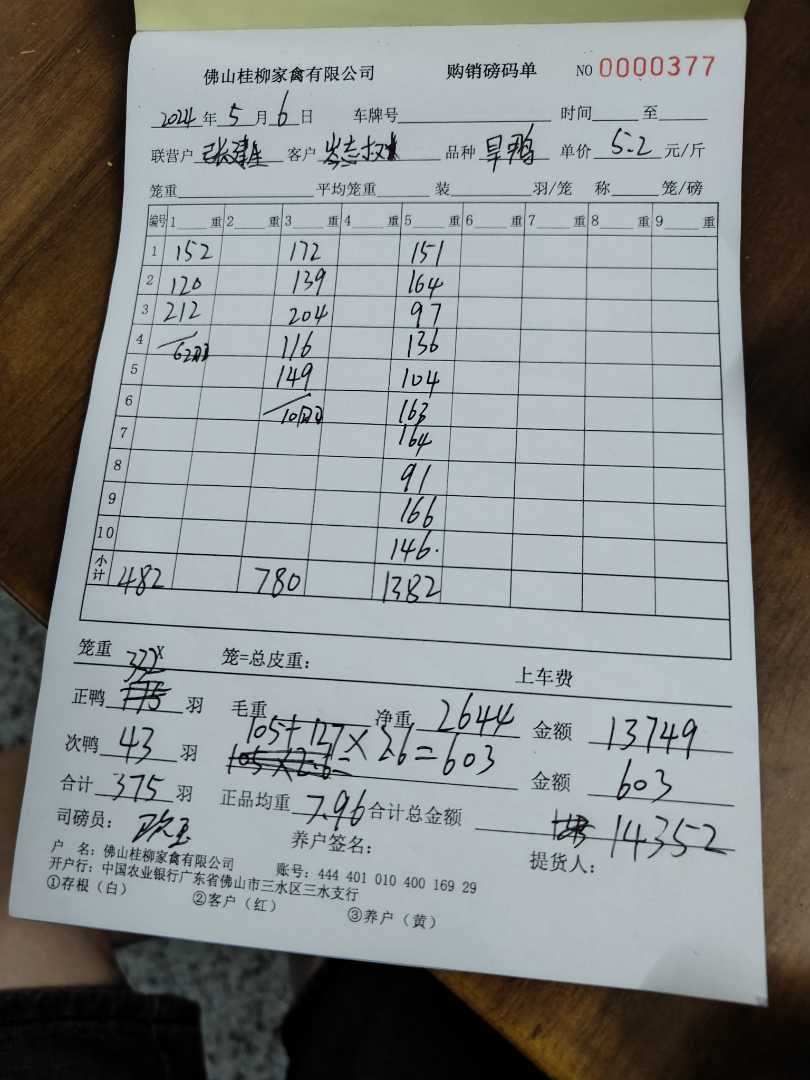 佛山桂柳家禽有限公司 购销磅码单 NO 0000377
2024年5月6日 车牌号 时间 至
联营户 张建生 客户 品种 旱鸭 单价 5.2 元/斤
笼重 平均笼重 装 羽/笼 称 笼/磅
编号 1 重 2 重 3 重 4 重 5 重 6 重 7 重 8 重 9 重
1 152 172 151
2 120 139 164
3 212 204 97
4 116 136
5 149 104
6 163
7 164
8 91
9 166
10 146.
小计 482 780 1382
笼重 x 笼=总皮重: 上车费
正鸭 332 羽 毛重 净重 2644 金额 13749
105+127×26=603
次鸭 43 羽 金额 603
合计 375 羽 正品均重 7.96 合计总金额 14352
司磅员: 养户签名: 提货人:
户 名: 佛山桂柳家禽有限公司 账号: 444 401 010 400 169 29
开户行: 中国农业银行广东省佛山市三水区三水支行
①存根（白） ②客户（红） ③养户（黄）